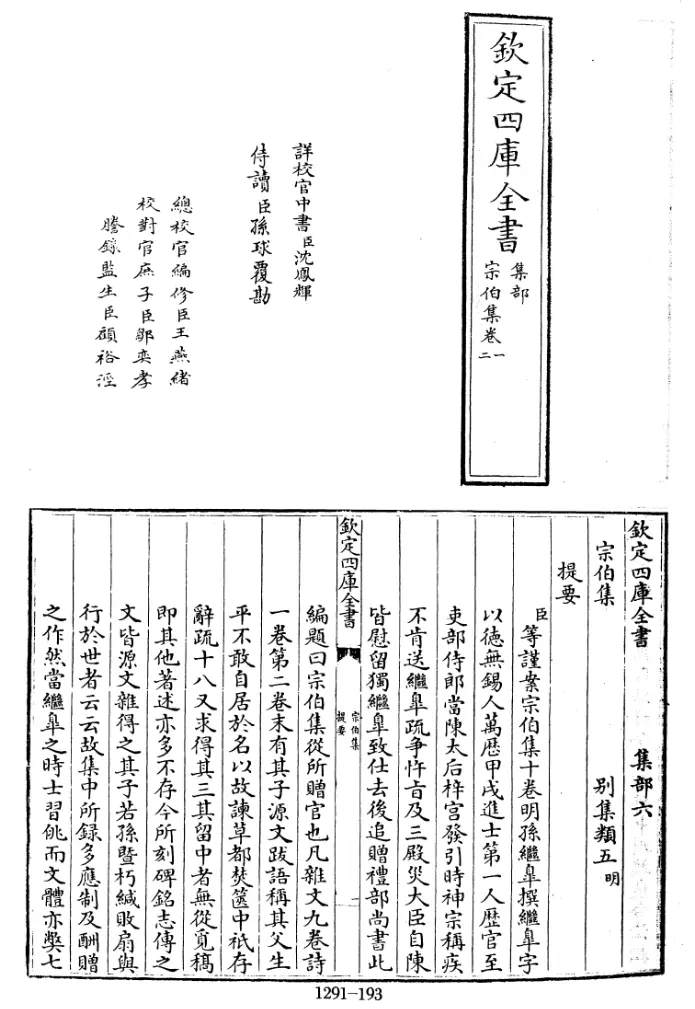 欽定四庫全書
集部
宗伯集卷一二
詳校官中書臣沈鳳輝
侍讀臣孫球覆勘
總校官編修臣王燕緒
校對官庶子臣鄒奕孝
謄錄監生臣顧裕澄
欽定四庫全書 集部六
宗伯集 別集類五明
提要
臣等謹案宗伯集十卷明孫繼臯撰繼臯字
以徳無錫人萬歴甲戌進士第一人歴官至
吏部侍郎當陳太后梓宮發引時神宗稱疾
不肯送繼臯疏爭忤㫖及三殿災大臣自陳
皆慰留獨繼臯致仕去後追贈禮部尚書此
欽定四庫全書
宗伯集
提要
一
編題曰宗伯集從所贈官也凡雜文九卷詩
一卷第二卷末有其子源文跋語稱其父生
平不敢自居於名以故諫草都焚篋中祇存
辭疏十八又求得其三其留中者無從覓稿
即其他著述亦多不存今所刻碑銘志傳之
文皆源文雜得之其子若孫暨朽緘敗扇與
行於世者云云故集中所録多應制及酬贈
之作然當繼臯之時士習佻而文體亦獘七
1291-193